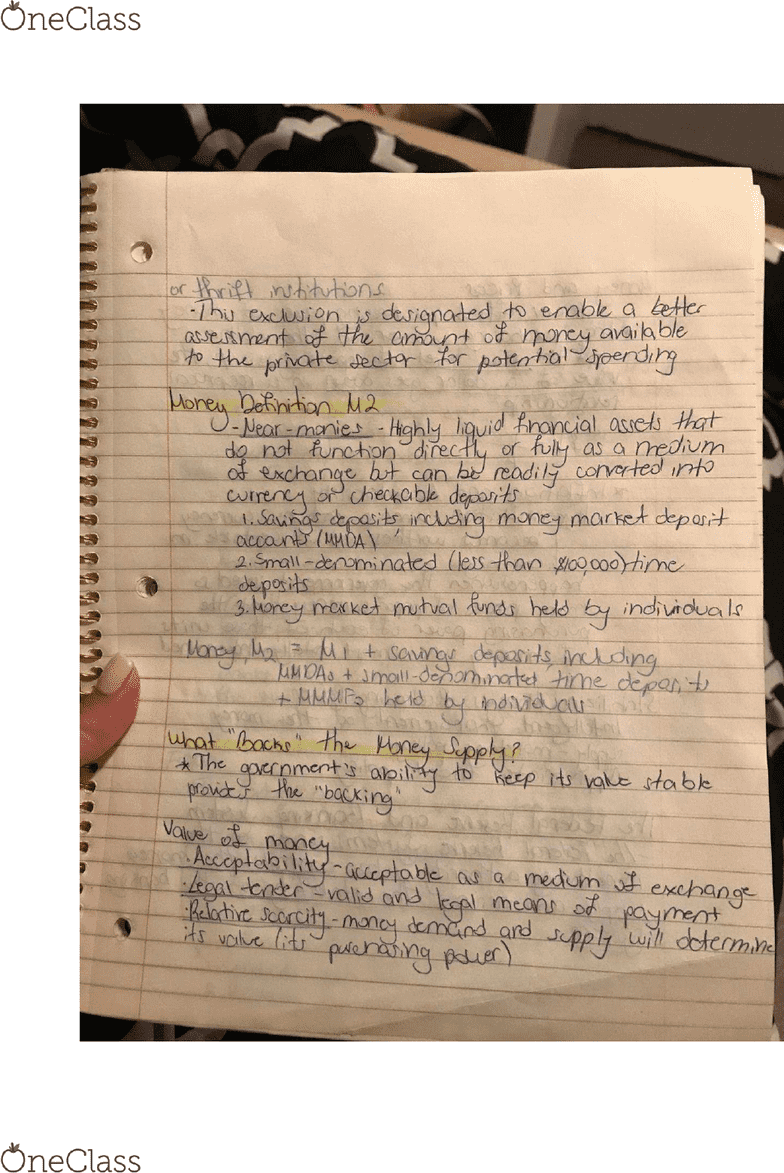 OneClass
or thrift institutions
·This exclusion is designated to enable a better
assessment of the amount of money available
to the private sector for potential spending
Money Definition M2
-Near-monies - Highly liquid financial assets that
do not function directly or fully as a medium
of exchange but can be readily converted into
currency or checkable deposits
1. Savings deposits, including money market deposit
accounts (MMDA)
2. Small-denominated (less than $100,000) time
deposits
3. Money market mutual funds held by individuals
Money, M2 = M1 + savings deposits, including
MMDAs + small-denominated time deposits
+ MMMFs held by individuals
What "Backs" the Money Supply?
*The government's ability to keep its value stable
provides the "backing"
Value of money
·Acceptability - acceptable as a medium of exchange
·Legal tender - valid and legal means of payment
·Relative scarcity - money demand and supply will determine
its value (its purchasing power)
OneClass